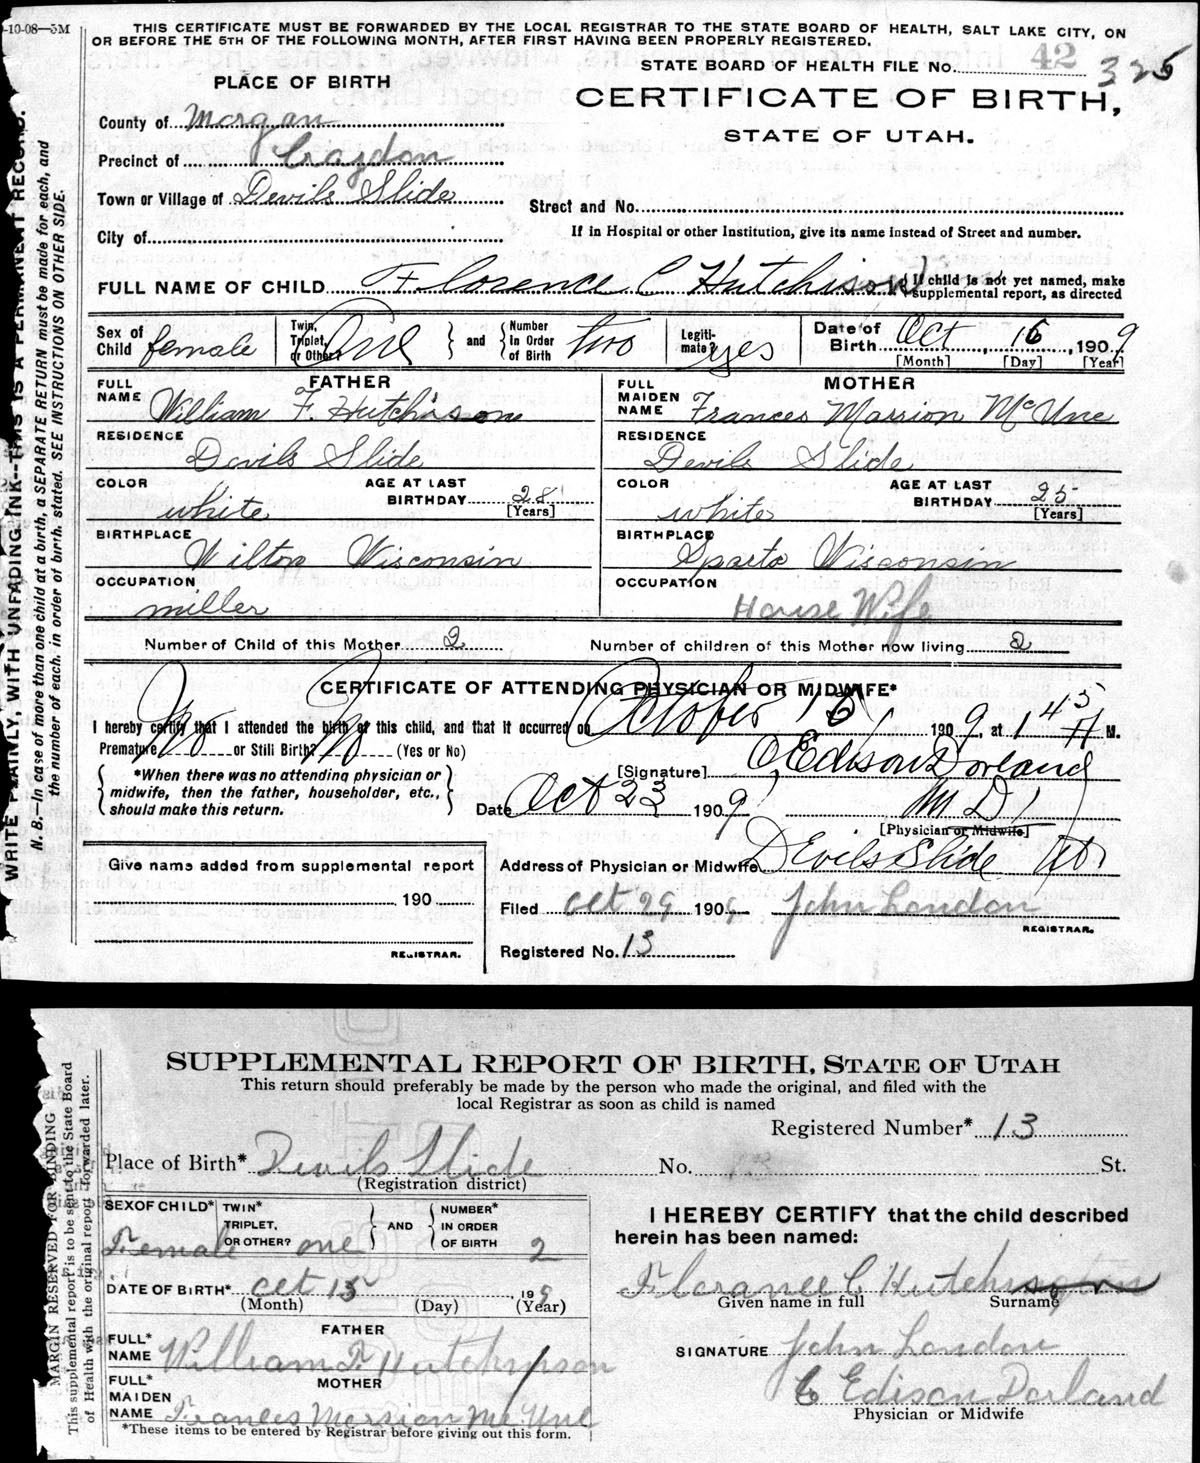 -10-08—5M
THIS CERTIFICATE MUST BE FORWARDED BY THE LOCAL REGISTRAR TO THE STATE BOARD OF HEALTH, SALT LAKE CITY, ON
OR BEFORE THE 5TH OF THE FOLLOWING MONTH, AFTER FIRST HAVING BEEN PROPERLY REGISTERED.
STATE BOARD OF HEALTH FILE No. 42 325
PLACE OF BIRTH
CERTIFICATE OF BIRTH,
STATE OF UTAH.
County of Morgan
Precinct of Croydon
Town or Village of Devils Slide
Street and No.
City of
If in Hospital or other Institution, give its name instead of Street and number.
FULL NAME OF CHILD Florence C Hutchison (If child is not yet named, make
supplemental report, as directed
Sex of Child female Twin, Triplet, or Other? One and Number In Order of Birth two Legitimate? yes Date of Birth Oct 16, 1909
[Month] [Day] [Year]
FATHER MOTHER
FULL NAME William F. Hutchison FULL MAIDEN NAME Frances Marsion McUne
RESIDENCE Devils Slide RESIDENCE Devils Slide
COLOR white AGE AT LAST BIRTHDAY 28 [Years] COLOR white AGE AT LAST BIRTHDAY 25 [Years]
BIRTHPLACE Wilton Wisconsin BIRTHPLACE Sparta Wisconsin
OCCUPATION miller OCCUPATION House Wife
Number of Child of this Mother 2 Number of children of this Mother now living 2
CERTIFICATE OF ATTENDING PHYSICIAN OR MIDWIFE*
I hereby certify that I attended the birth of this child, and that it occurred on October 15, 1909, at 1 45 A M.
Premature No or Still Birth? No (Yes or No)
*When there was no attending physician or
midwife, then the father, householder, etc.,
should make this return.
[Signature] C Edison Dorland
Date Oct 23 1909 M D
[Physician or Midwife]
Address of Physician or Midwife Devils Slide Ut
Give name added from supplemental report
190
REGISTRAR.
Filed Oct 29 1909 John London
REGISTRAR.
Registered No. 13
WRITE PLAINLY, WITH UNFADING INK—THIS IS A PERMANENT RECORD.
N. B.—In case of more than one child at a birth, a SEPARATE RETURN must be made for each, and
the number of each, in order of birth, stated. SEE INSTRUCTIONS ON OTHER SIDE.
SUPPLEMENTAL REPORT OF BIRTH, STATE OF UTAH
This return should preferably be made by the person who made the original, and filed with the
local Registrar as soon as child is named
Registered Number* 13
Place of Birth* Devils Slide No. St.
(Registration district)
SEX OF CHILD* Female TWIN* TRIPLET, OR OTHER? one AND NUMBER* IN ORDER OF BIRTH 2
I HEREBY CERTIFY that the child described
herein has been named:
DATE OF BIRTH* Oct 15, 199
(Month) (Day) (Year)
Florance C Hutchington
Given name in full Surname
FATHER
FULL* NAME William F. Hutchyson
SIGNATURE John London
MOTHER
FULL* MAIDEN NAME Frances Marsion McUne
C Edison Dorland
Physician or Midwife
*These items to be entered by Registrar before giving out this form.
MARGIN RESERVED FOR BINDING
This supplemental report is to be sent to the State Board
of Health with the original report forwarded later.